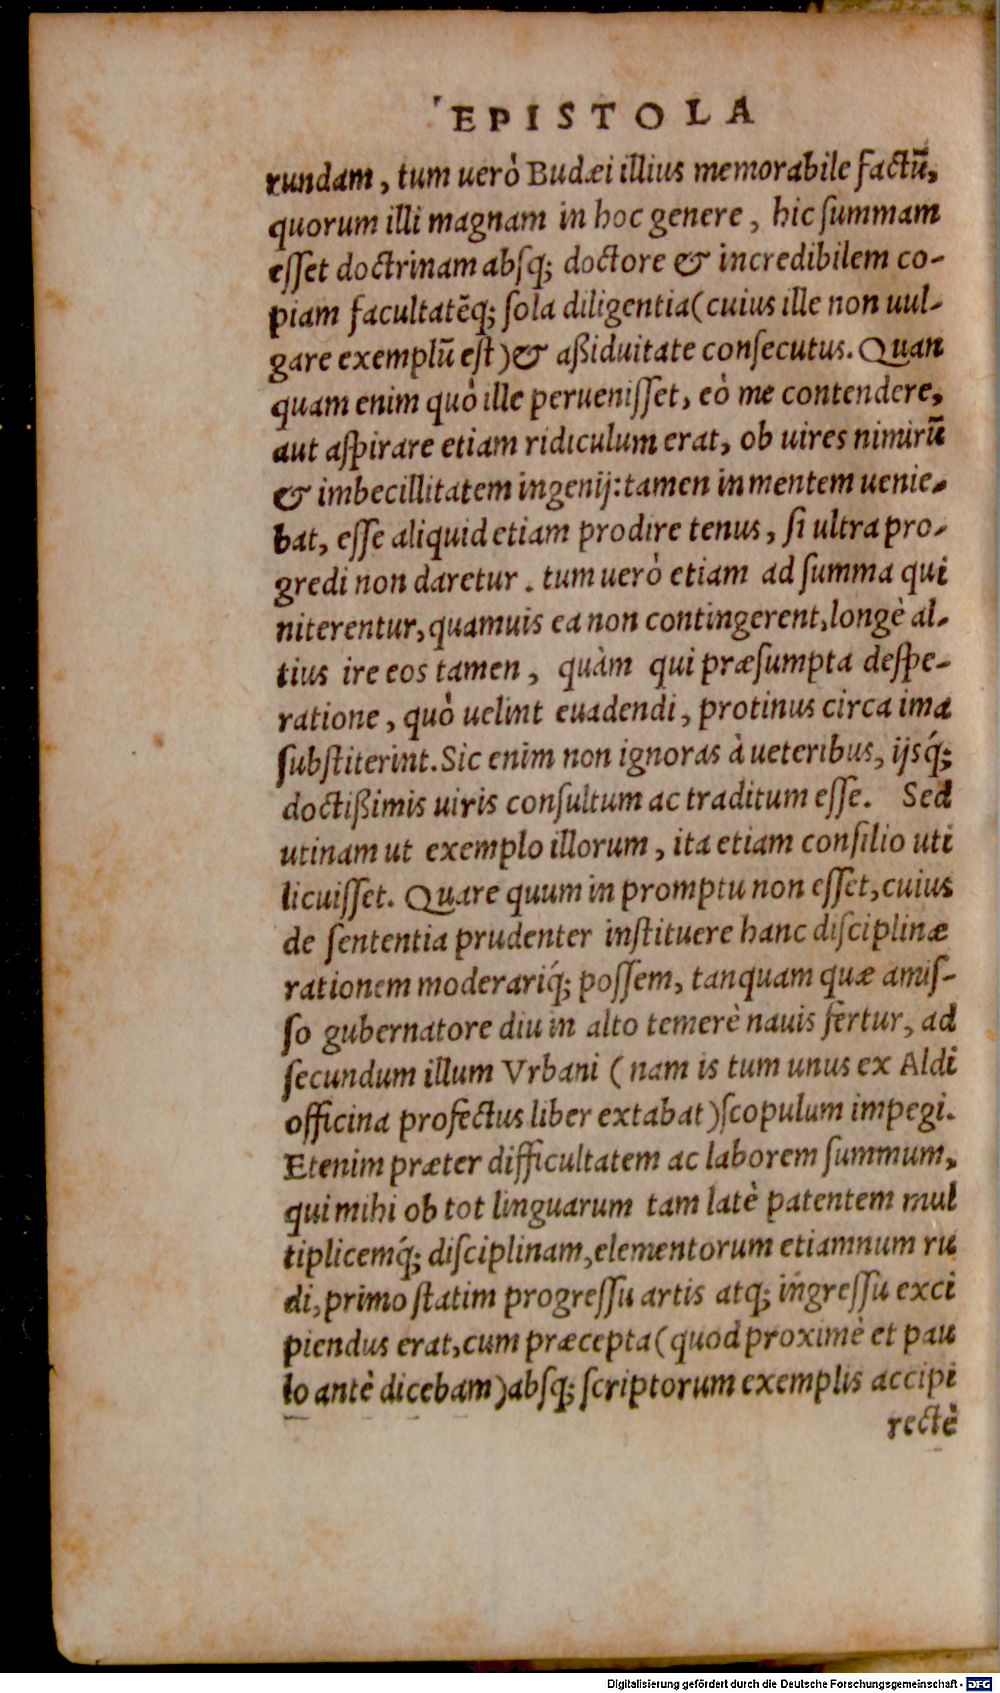 EPISTOLA
rundam, tum uerò Budæi illius memorabile factũ,
quorum illi magnam in hoc genere, hic ſummam
eſſet doctrinam abſq; doctore & incredibilem co-
piam facultatẽq; ſola diligentia (cuius ille non uul-
gare exemplũ eſt) & aßiduitate conſecutus. Quan
quam enim quò ille perueniſſet, eò me contendere,
aut aſpirare etiam ridiculum erat, ob uires nimirũ
& imbecillitatem ingenij: tamen in mentem uenie-
bat, eſſe aliquid etiam prodire tenus, ſi ultra pro-
gredi non daretur. tum uerò etiam ad ſumma qui
niterentur, quamuis ea non contingerent, longè al-
tius ire eos tamen, quàm qui præſumpta deſpe-
ratione, quò uelint euadendi, protinus circa ima
ſubſtiterint. Sic enim non ignoras à ueteribus, ijsq́;
doctißimis uiris conſultum ac traditum eſſe. Sed
utinam ut exemplo illorum, ita etiam conſilio uti
licuiſſet. Quare quum in promptu non eſſet, cuius
de ſententia prudenter inſtituere hanc diſciplinæ
rationem moderariq́; poſſem, tanquam quæ amiſ-
ſo gubernatore diu in alto temerè nauis fertur, ad
ſecundum illum Vrbani (nam is tum unus ex Aldi
officina profectus liber extabat) ſcopulum impegi.
Etenim præter difficultatem ac laborem ſummum,
qui mihi ob tot linguarum tam latè patentem mul
tiplicemq́; diſciplinam, elementorum etiamnum ru
di, primo ſtatim progreſſu artis atq; ingreſſu exci
piendus erat, cum præcepta (quod proximè et pau
lo antè dicebam) abſq; ſcriptorum exemplis accipi
rectè
Digitalisierung gefördert durch die Deutsche Forschungsgemeinschaft - DFG